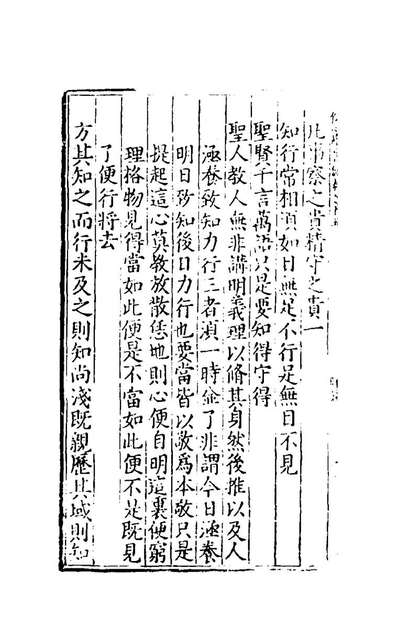 凡事察之貴精守之貴一
知行常相須如目無足不行足無目不見
聖賢千言萬語只是要知得守得
聖人教人無非講明義理以脩其身然後推以及人
涵養致知力行三者須一時企了非謂今日涵養
明日致知後日力行也要當皆以敬爲本敬只是
提起這心莫教放散恁地則心便自明這裏便窮
理格物見得當如此便是不當如此便不是既見
了便行將去
方其知之而行未及之則知尚淺既親歷其域則知